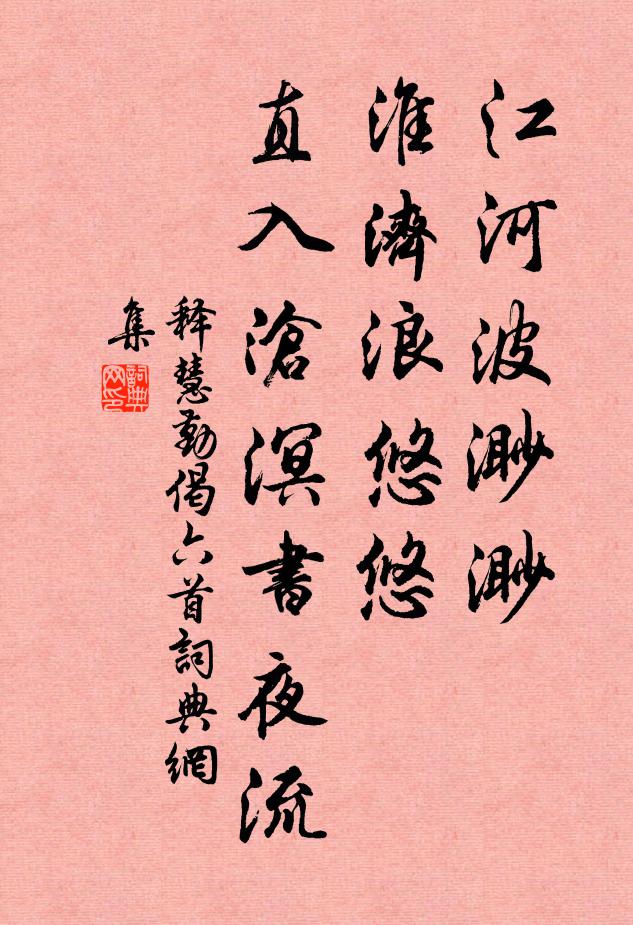 江河波渺渺
淮濟浪悠悠
直入滄溟書夜流
释慧勤偈六首詞典網
集
詞典網印